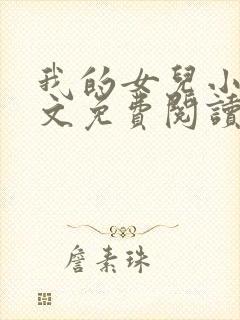 我的女兒小
文免費閱讀
詹素珠